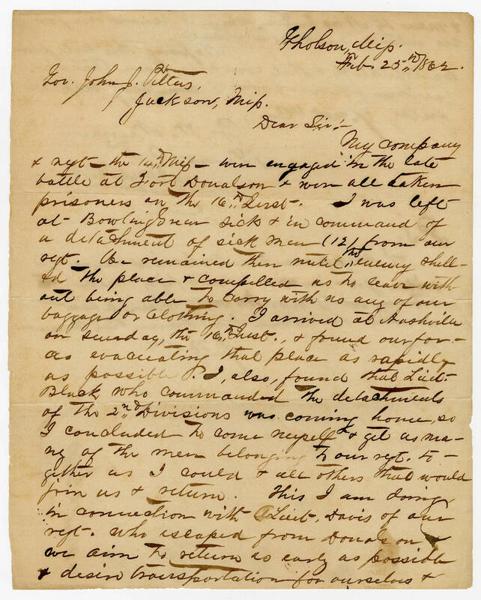 Gholson, Miss.
Feb. 25th, 1862.
Gov. John J. Pettus,
Jackson, Miss.
Dear Sir:-
My company
& regt - the 14th Miss - were engaged in the late
battle at Fort Donalson & were all taken
prisoners on the 16th Inst. I was left
at Bowling Green sick & in command of
a detachment of sick men (12) from our
regt. We remained there until the enemy shell-
ed the place & compelled us to leave with
out being able to carry with us any of our
baggage or clothing. I arrived at Nashville
on sunday, the 16th Inst., & found our for-
ces evacuating that place as rapidly
as possible. I, also, found that Lieut.
Buck who commanded the detachments
of the 2nd Divisions was coming home, so
I concluded to come myself & get as ma-
ny of the men belonging to our regt. to-
gether as I could & all others that would
join us & return. This I am doing
in connection with Lieut. Davis of our
regt. who escaped from Donalson &
we aim to return as early as possible
& desire transportation for ourselves &